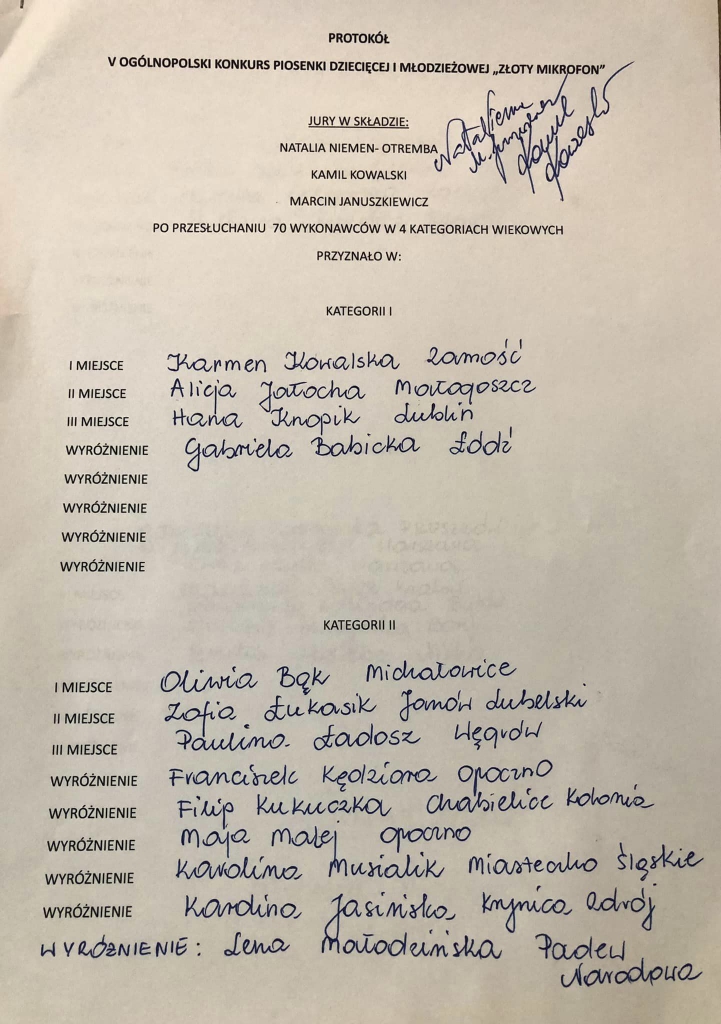 PROTOKÓŁ
V OGÓLNOPOLSKI KONKURS PIOSENKI DZIECIĘCEJ I MŁODZIEŻOWEJ „ZŁOTY MIKROFON”
JURY W SKŁADZIE:
NATALIA NIEMEN- OTREMBA
KAMIL KOWALSKI
MARCIN JANUSZKIEWICZ
PO PRZESŁUCHANIU 70 WYKONAWCÓW W 4 KATEGORIACH WIEKOWYCH
PRZYZNAŁO W:
KATEGORII I
I MIEJSCE Karmen Kowalska Zamość
II MIEJSCE Alicja Jałocha Małogoszcz
III MIEJSCE Hanna Knopik Lublin
WYRÓŻNIENIE Gabriela Babicka Łódź
WYRÓŻNIENIE
WYRÓŻNIENIE
WYRÓŻNIENIE
WYRÓŻNIENIE
KATEGORII II
I MIEJSCE Oliwia Bąk Michałowice
II MIEJSCE Zofia Łukasik Janów Lubelski
III MIEJSCE Paulina Ładosz Węgrów
WYRÓŻNIENIE Franciszek Kędziora Opoczno
WYRÓŻNIENIE Filip Kukuczka Chabielice Kolonia
WYRÓŻNIENIE Maja Małej Opoczno
WYRÓŻNIENIE Karolina Musialik Miasteczko Śląskie
WYRÓŻNIENIE Karolina Jasińska Krynica Zdrój
WYRÓŻNIENIE: Lena Małodzińska Padew
Narodowa